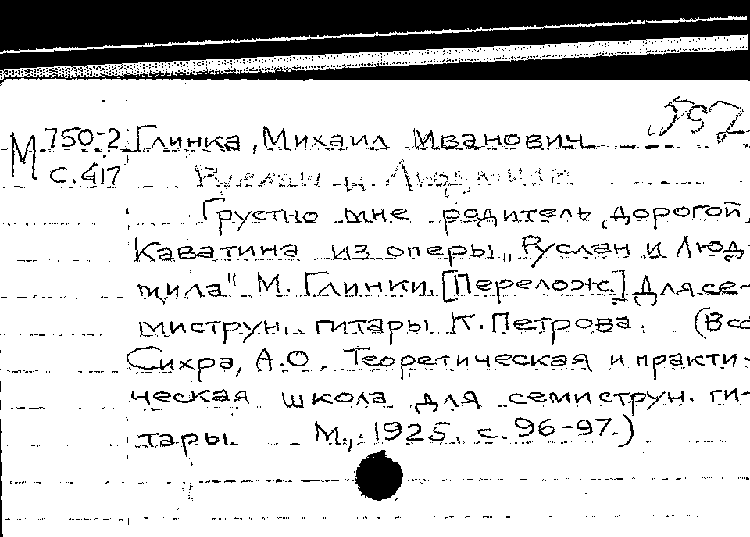 М 750-2 Глинка, Михаил Иванович
с. 417 Руслан и Людмила
Грустно мне родитель дорогой,
Каватина из оперы „Руслан и Люд-
мила" М. Глинки. [Перелож.] для се-
миструн. гитары К. Петрова. (В сб
Сихра, А.О. Теоретическая и практи-
ческая школа для семиструн. ги-
тары. М., 1925. с. 96-97.)